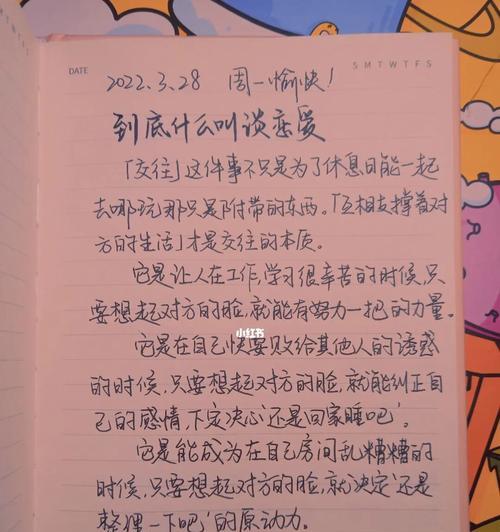 DATE
S M T W T F S
2022.3.28 周一愉快!
到底什么叫谈恋爱
「交往」这件事不只是为了休息日能一起
去哪玩那只是附带的东西。「互相支撑着对
方的生活」才是交往的本质。
它是让人在工作,学习很辛苦的时候,只
要想起对方的脸,就能有努力一把的力量。
小红书
它是在自己快要败给其他人的诱惑
的时候,只要想起对方的脸,就能纠正自
己的感情,下定决心'还是回家睡吧'。
它是能成为在自己房间乱糟糟的
时候,只要想起对方的脸,就决定'还是
整理一下吧'的原动力。